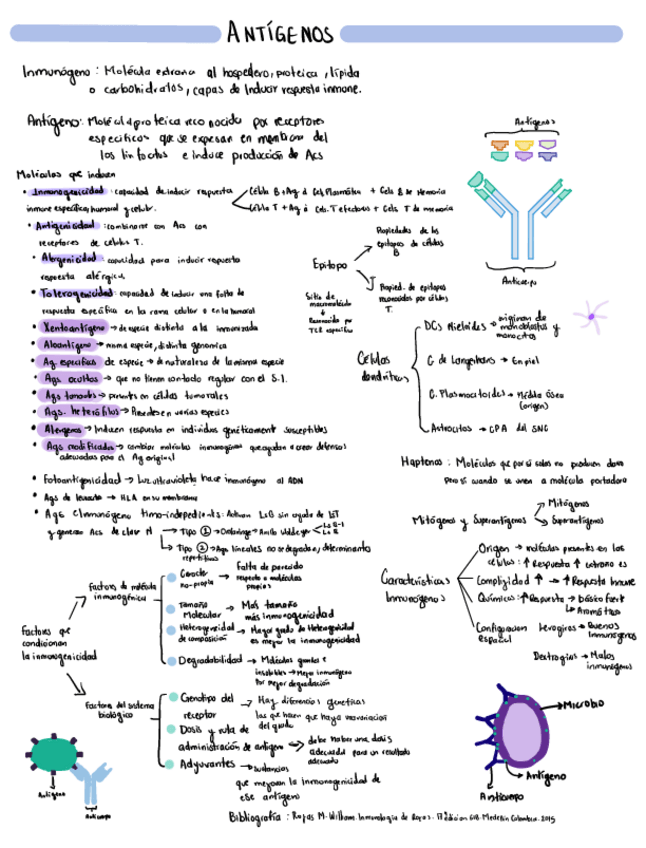 ANTÍGENOS
Inmunógeno: Molécula extraña al hospedero, proteica, lípida
o carbohidratos, capas de Inducir respuesta inmune.
Antígeno: Molécula proteica reconocida por receptores
especificos que se expresan en membrana del
los linfocitos e induce producción de Acs
Moléculas que inducen
• Inmunogenicidad: capacidad de inducir respuesta
inmune específica, humoral y celular.
Célula B + Ag → Cel. Plasmática + Cels B de Memoria
Célula T + Ag → Cels. T efectoras + Cels T de memoria
• Antigenicidad: combinarse con Acs con
receptores de celulas T.
• Alergenicidad: capacidad para inducir repuesta
respuesta alérgica.
• Tolerogenicidad: capacidad de inducir una falta de
respuesta específica en la rama celular o en la humoral
• Xenoantígeno → de especie distinta a la inmunizada
• Aloantígeno → misma especie, distinta genomica
• Ag. especificos de especie → de naturaleza de la misma especie
• Ags ocultos → que no tienen contacto regular con el S.I.
• Ags tumorales → presents en células tumorales
• Ags. heterófilos → Presentes en varias especies
• Alergenos → Inducen respuesta en individuos genéticamente susceptibles
• Ags modificados → cambiar moléculas inmunogénas que ayudan a crear defensas
adecuadas para el Ag original
• Fotoantigenicidad → Luz ultravioleta hace inmunógeno al ADN
• Ags de leucocito → HLA en su membrana
• Ags Inmunógeno timo-independients: Activan LsB sin ayuda de LsT
y generan Acs de clase M
Tipo ① →
Tipo ② → Ags lineales no se degradan, determinantes
repetitivos
Epítopo
Sitio de macromolécula
Reconocida por
TCR específico
Propiedades de los
epítopos de células
B
Propied. de epítopos
reconocidos por células
T.
Antígenos
Anticuerpo
Células
dendríticas
DCs Mieloides → originan de
monoblastos y
monocitos
C. de Langerhans → En piel
C. Plasmocitoides → Médula ósea
(origen)
Astrocitos → CPA del SNC
Haptenos: Moléculas que por si solas no producen daño
pero si cuando se unen a molécula portadora
Mitógenos y Superantígenos
Mitógenos
Superantígenos
Características
Inmunógenos
Origen → moléculas presents en las
células: ↑ Respuesta ↑ extraño es
Complejidad ↑ → ↑ Respuesta Inmune
Químicas: ↑ Respuesta → básico fuert
↳ Aromático
Configuracion
español
Levogiros → Buenos
Inmunógenos
Dextrogiros → Malos
inmunógenos
Factores que
condicionan
la inmunogenicidad
Factores de molécula
inmunogénica
Caracter
no-propio → Falta de parecido
respecto a moléculas
propias
Tamaño
Molecular → Mas tamaño
más inmunogenicidad
Heterogeneidad
de composición → Mayor grado de Heterogeneidad
es mejor la inmunogenicidad
Degradabilidad → Moléculas grandes e
insolubles → Mejor inmunógeno
por mejor degradación
Factores del sistema
biológico
Genotipo del
receptor → Hay diferencias genéticas
las que hacen que haya variación
del grado
Dosis y ruta de
administración de antigeno → debe haber una dosis
adecuada para un resultado
adecuado
Adyuvantes → sustancias
que mejoran la inmunogenicidad de
ese antígeno
Antígeno
Anticuerpo
Microbio
Antígeno
Anticuerpo
Bibliografía: Rojas M. William. Inmunología de Rojas. 17 edicion CIB. Medellin Colombia. 2015